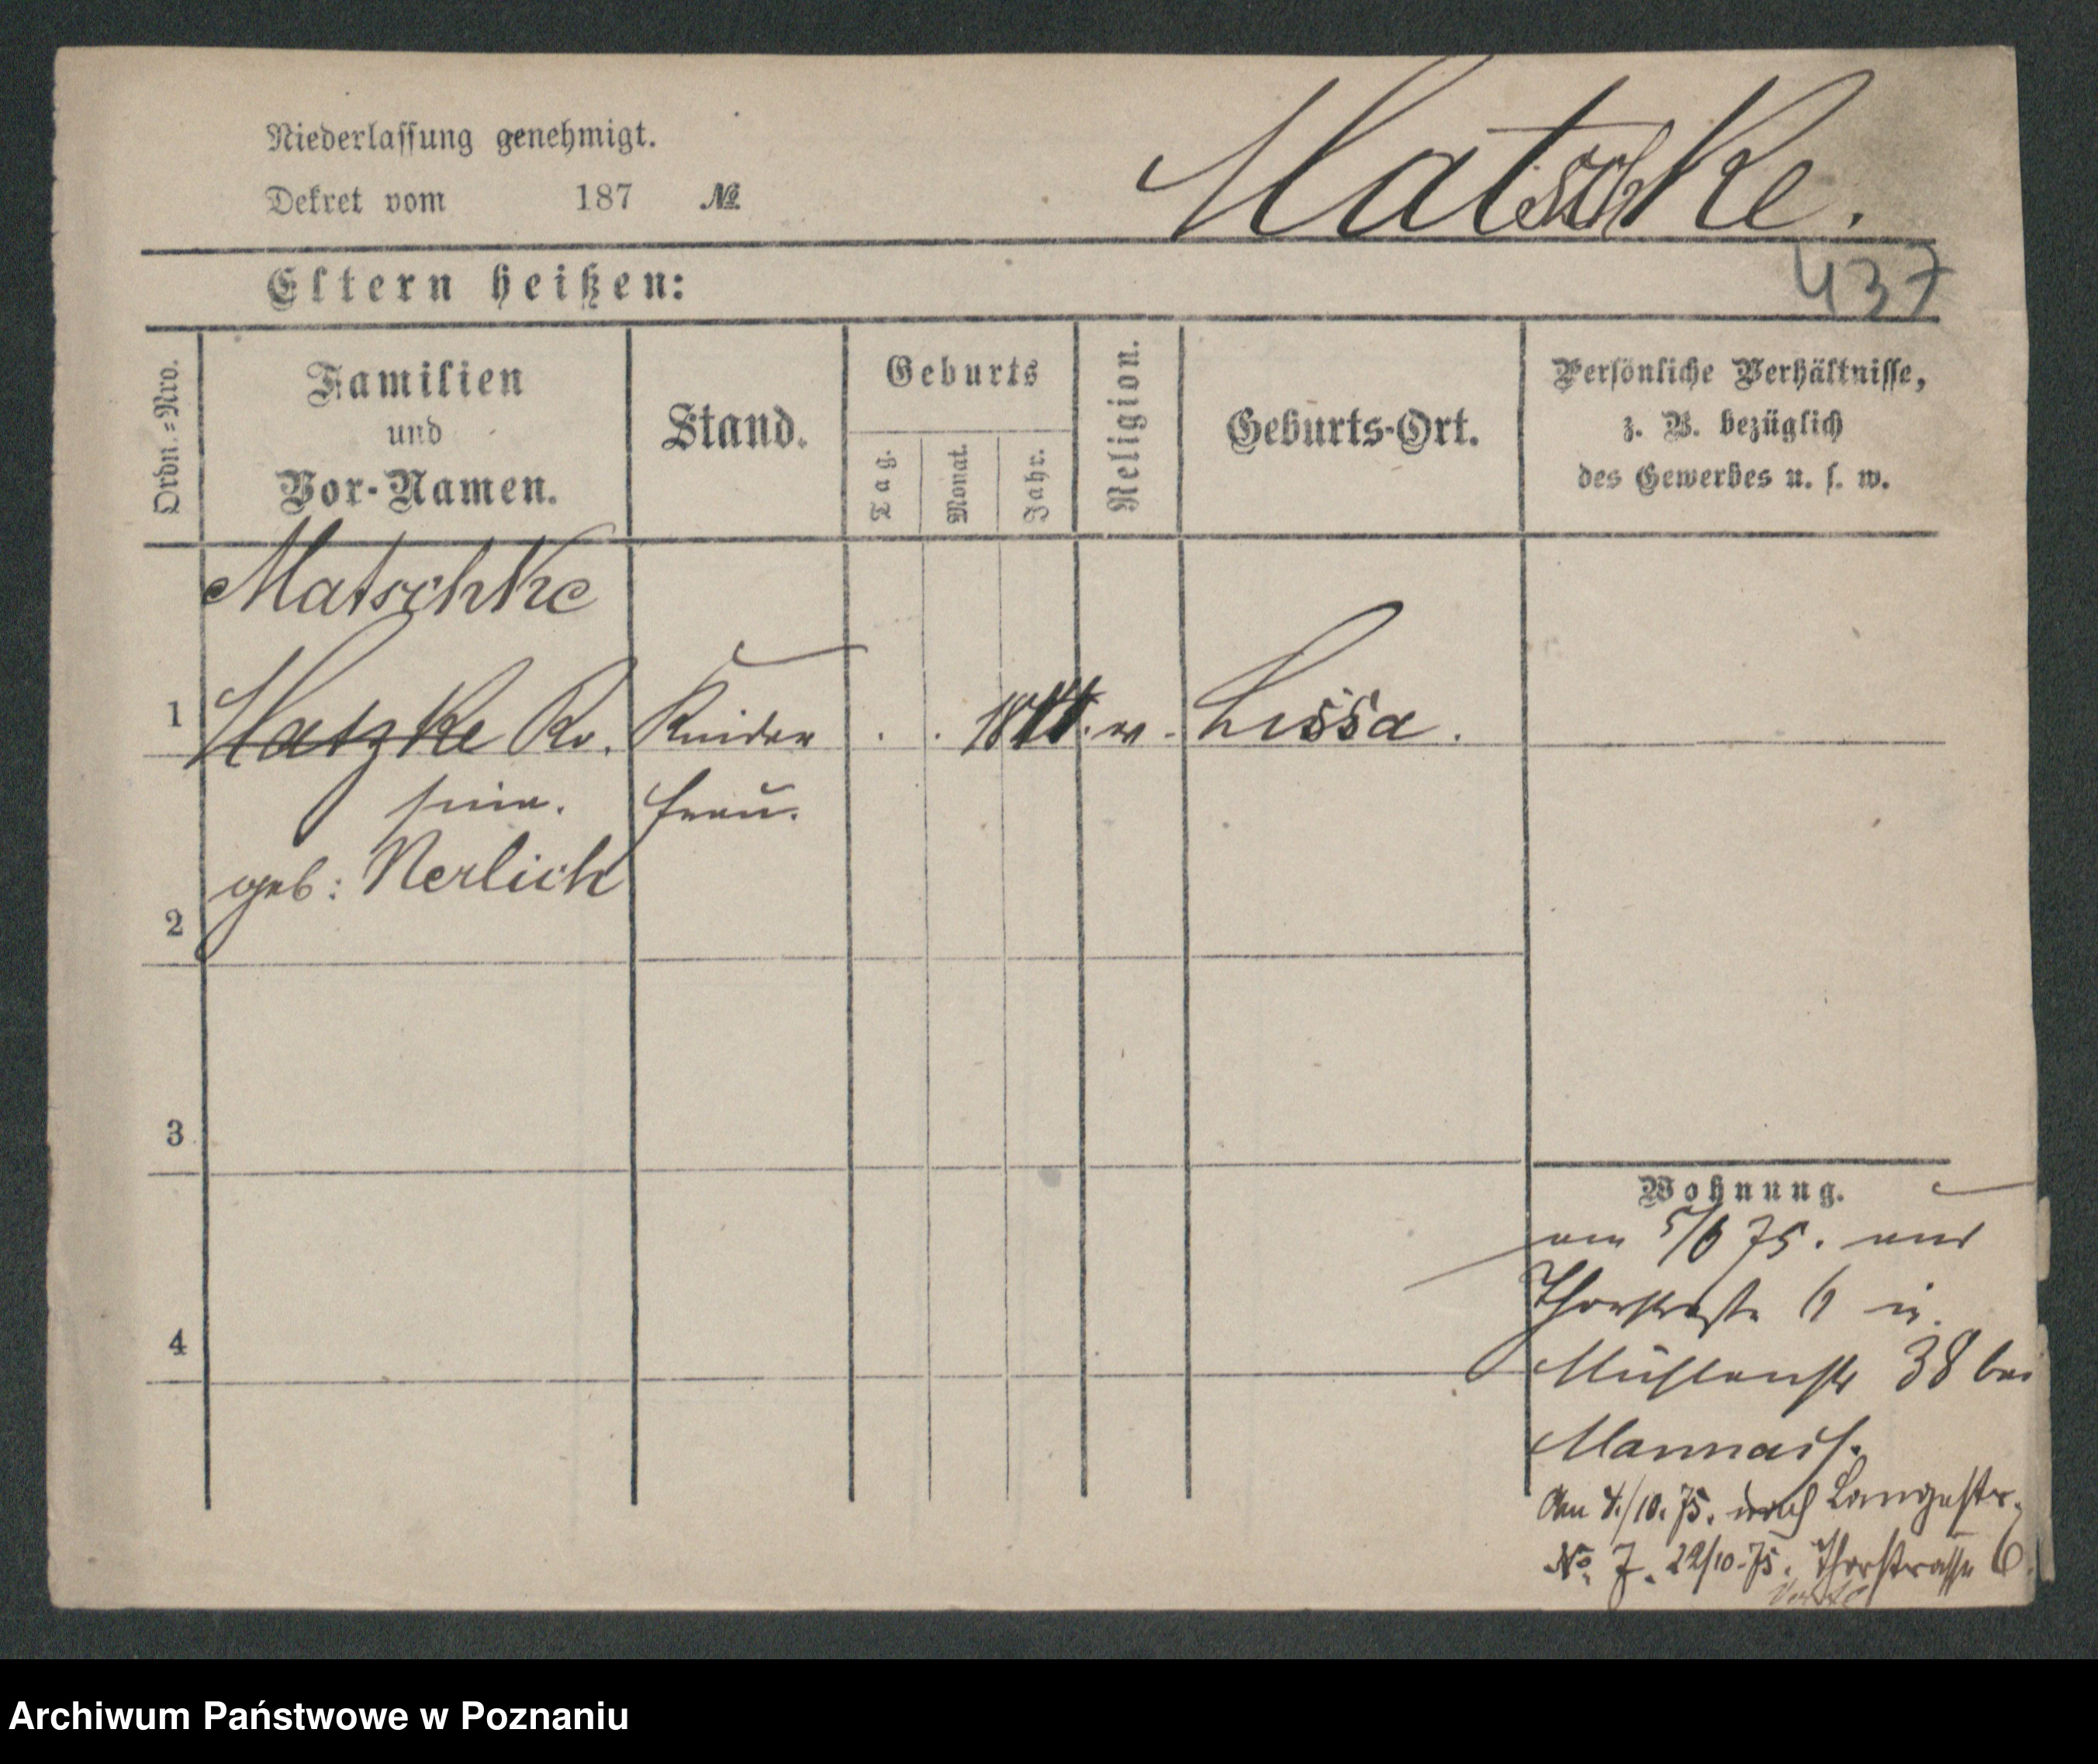 Niederlassung genehmigt.
Dekret vom 187 №
Matschke.
437
Eltern heißen:
Ordn.=Nro.
Familien
und
Vor-Namen.
Stand.
Geburts
Tag.
Monat.
Jahr.
Religion.
Geburts-Ort.
Persönliche Verhältnisse,
z. B. bezüglich
des Gewerbes u. s. w.
Matschke
1 Matzke Ro. Kinder . . w. Lissa.
sina. frau.
geb: Nerlich
2
3
4
Wohnung.
am 5/6 75. aus
Thorstraße 6 in
Mühlenstr 38 bei
Mannass.
Am 4./10. 75. nach Langestr.
No. 7. 22/10. 75. Thorstrasse 6.
Archiwum Państwowe w Poznaniu